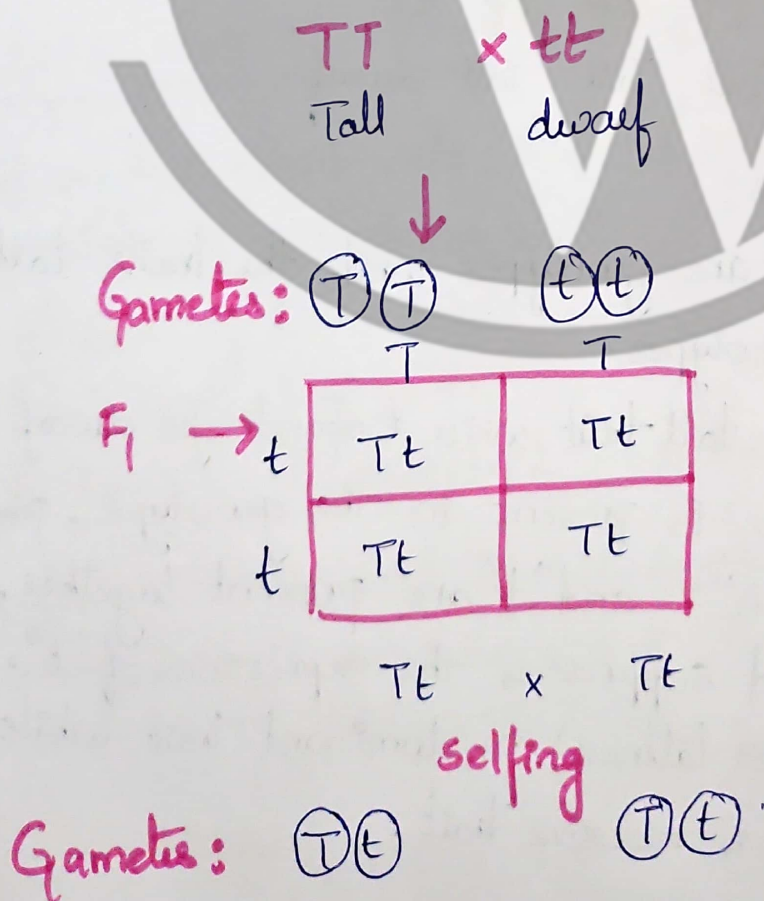 TT x tt
Tall dwarf
Gametes: T T t t
T T
F1 → t Tt Tt
t Tt Tt
Tt x Tt
selfing
Gametes: T t T t